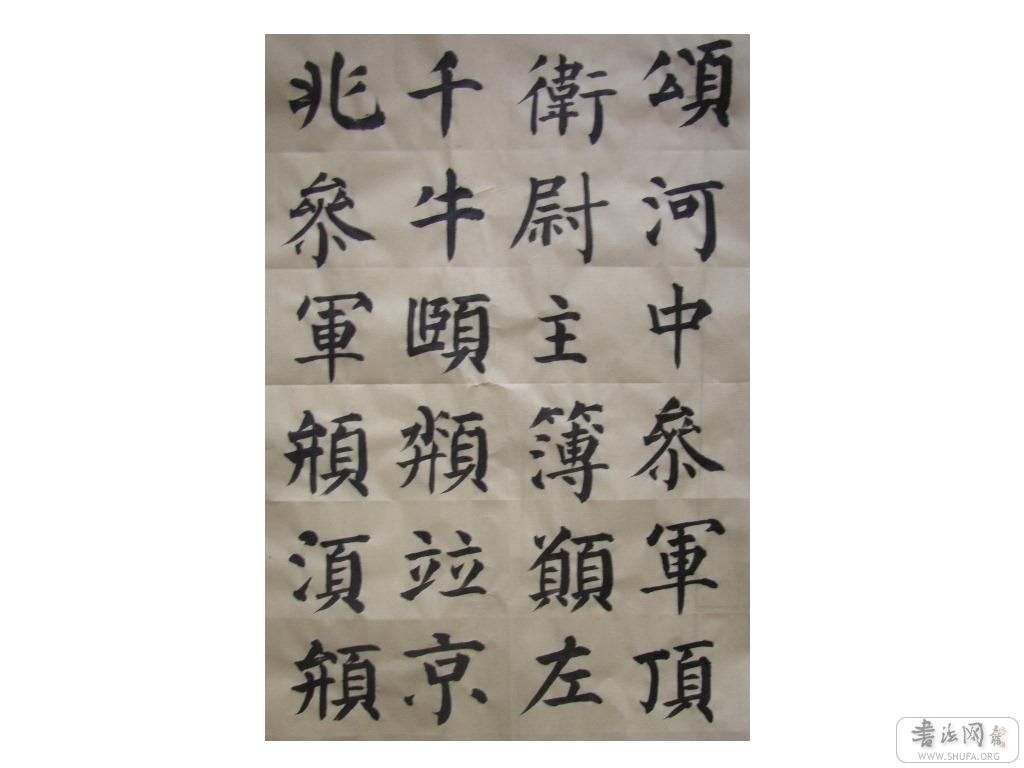 頌河中參軍頂
衛尉主簿左
千牛頤竝京
兆參軍頩須頩
書法网
WWW.SHUFA.ORG